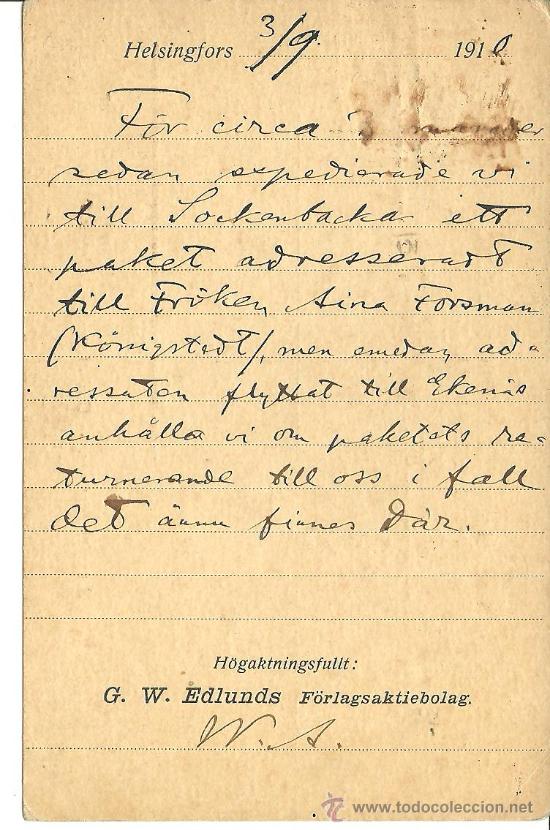 Helsingfors 3/9. 1910
För circa 3 månader
sedan expedierade vi
till Sockenbacka ett
paket adresseradt
till Fröken Aina Forsman
(Königstedt), men emedan ad=
ressaten flyttat till Ekenäs
anhålla vi om paketets re=
turnerande till oss i fall
det ännu finnes där.
Högaktningsfullt:
G. W. Edlunds Förlagsaktiebolag.
W. A.
www.todocoleccion.net